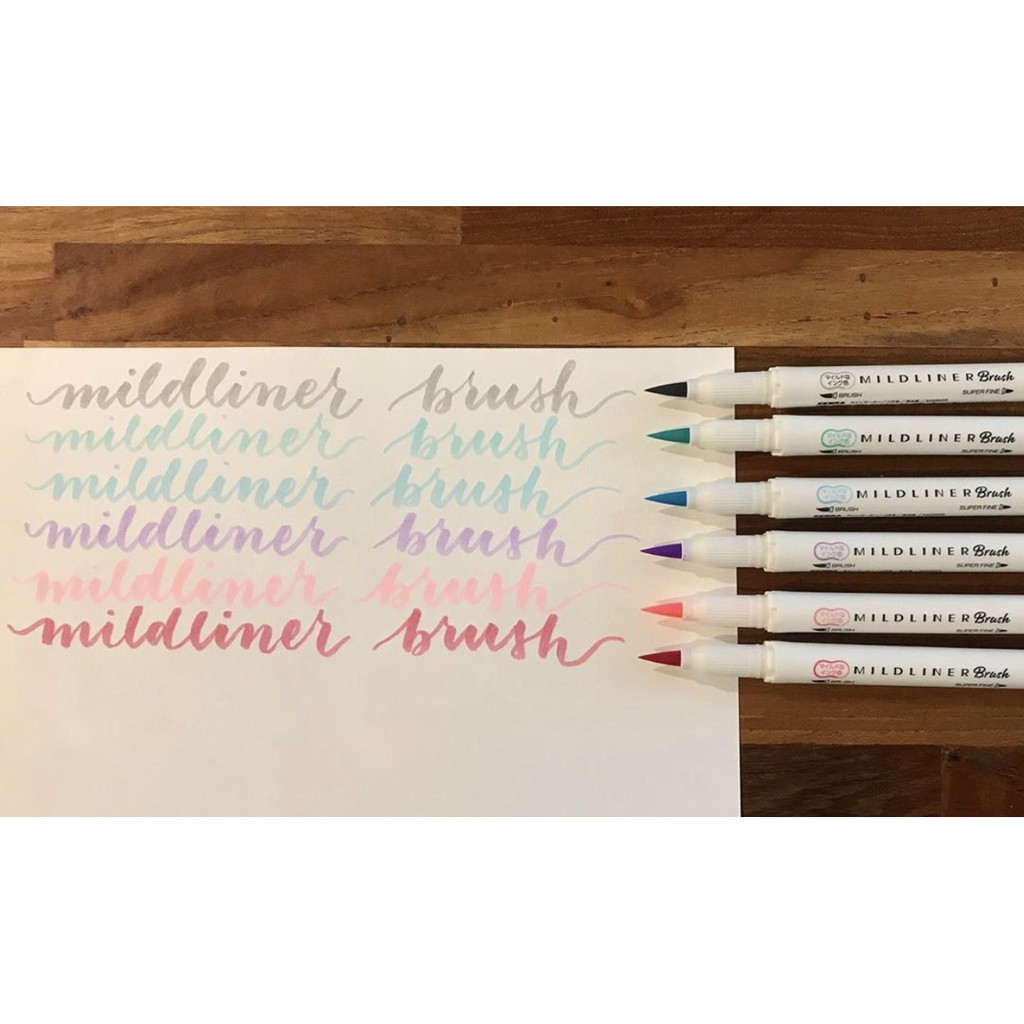 mildliner brush
mildliner brush
mildliner brush
mildliner brush
mildliner brush
mildliner brush
マイルドな
インク色
MILDLINER Brush
BRUSH
SUPER FINE
マイルドな
インク色
MILDLINER Brush
BRUSH
SUPER FINE
マイルドな
インク色
MILDLINER Brush
BRUSH
SUPER FINE
マイルドな
インク色
MILDLINER Brush
BRUSH
SUPER FINE
マイルドな
インク色
MILDLINER Brush
BRUSH
SUPER FINE
マイルドな
インク色
MILDLINER Brush
BRUSH
SUPER FINE